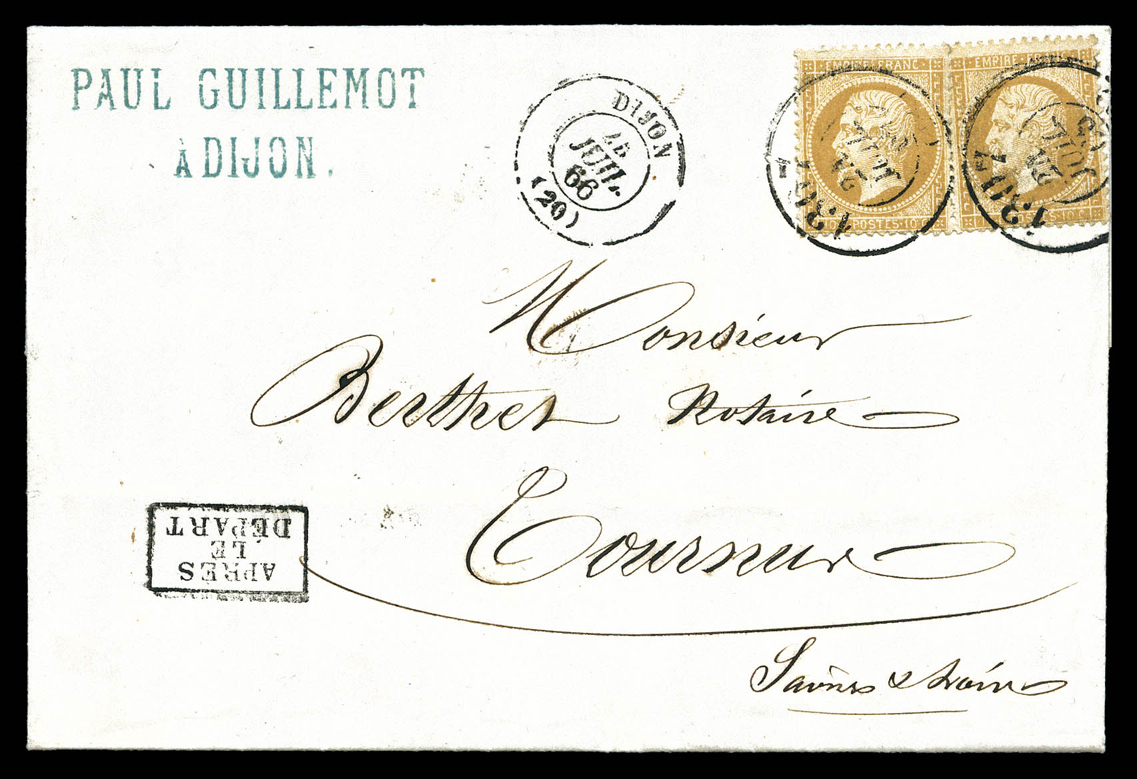 PAUL GUILLEMOT
À DIJON.
DIJON
JUIL.
66
(20)
EMPIRE FRANC
EMPIRE FRANC
10 C POSTES 10 C
1307
1307
Monsieur
Berthet Notaire
Tournus
Saône & Loire
APRES
LE
DÉPART